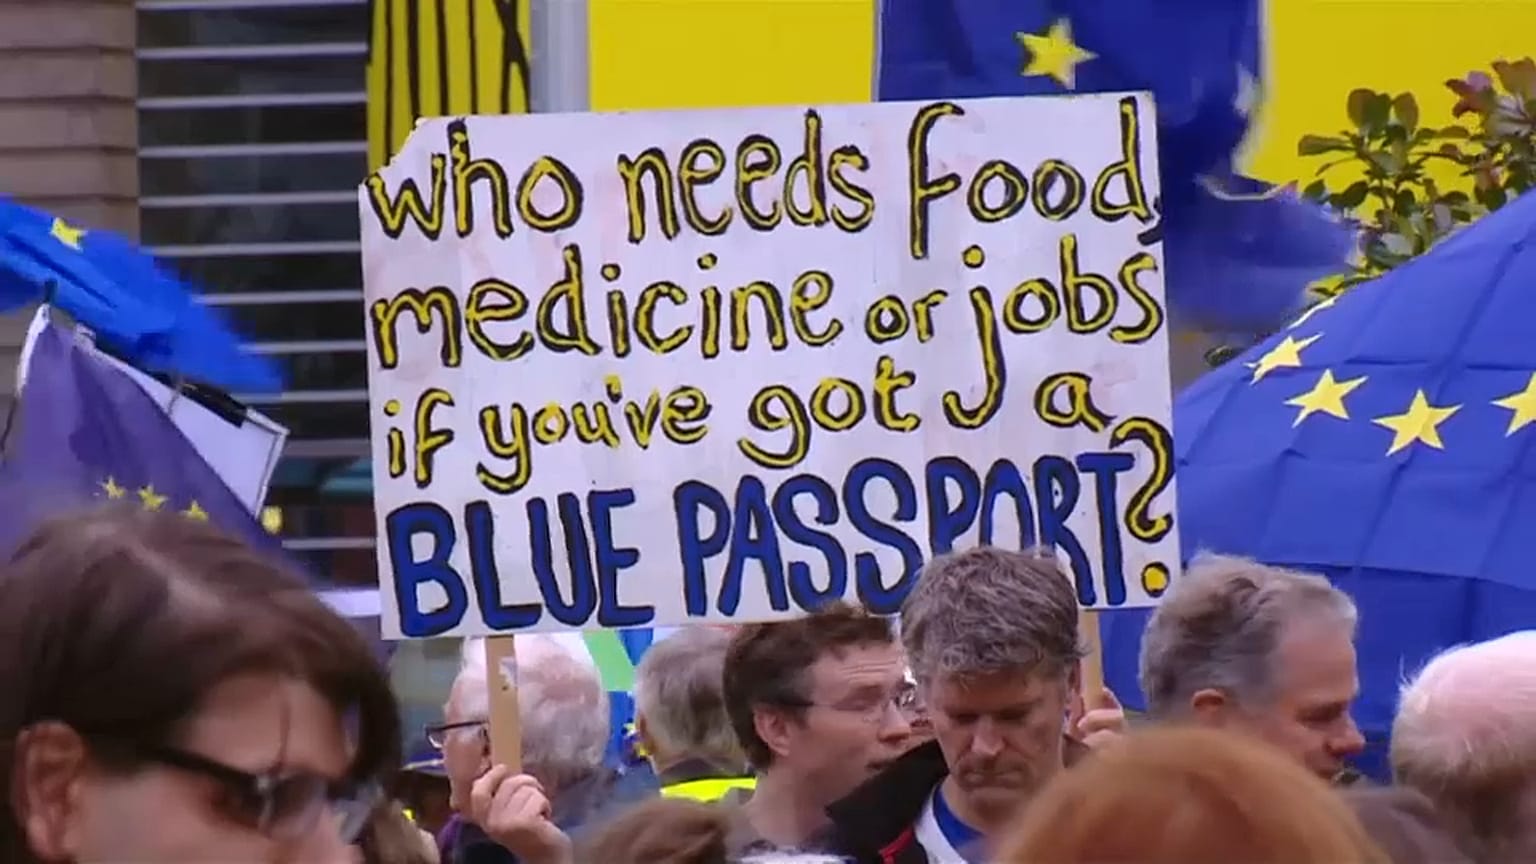 who needs food,
medicine or jobs
if you've got a
BLUE PASSPORT?